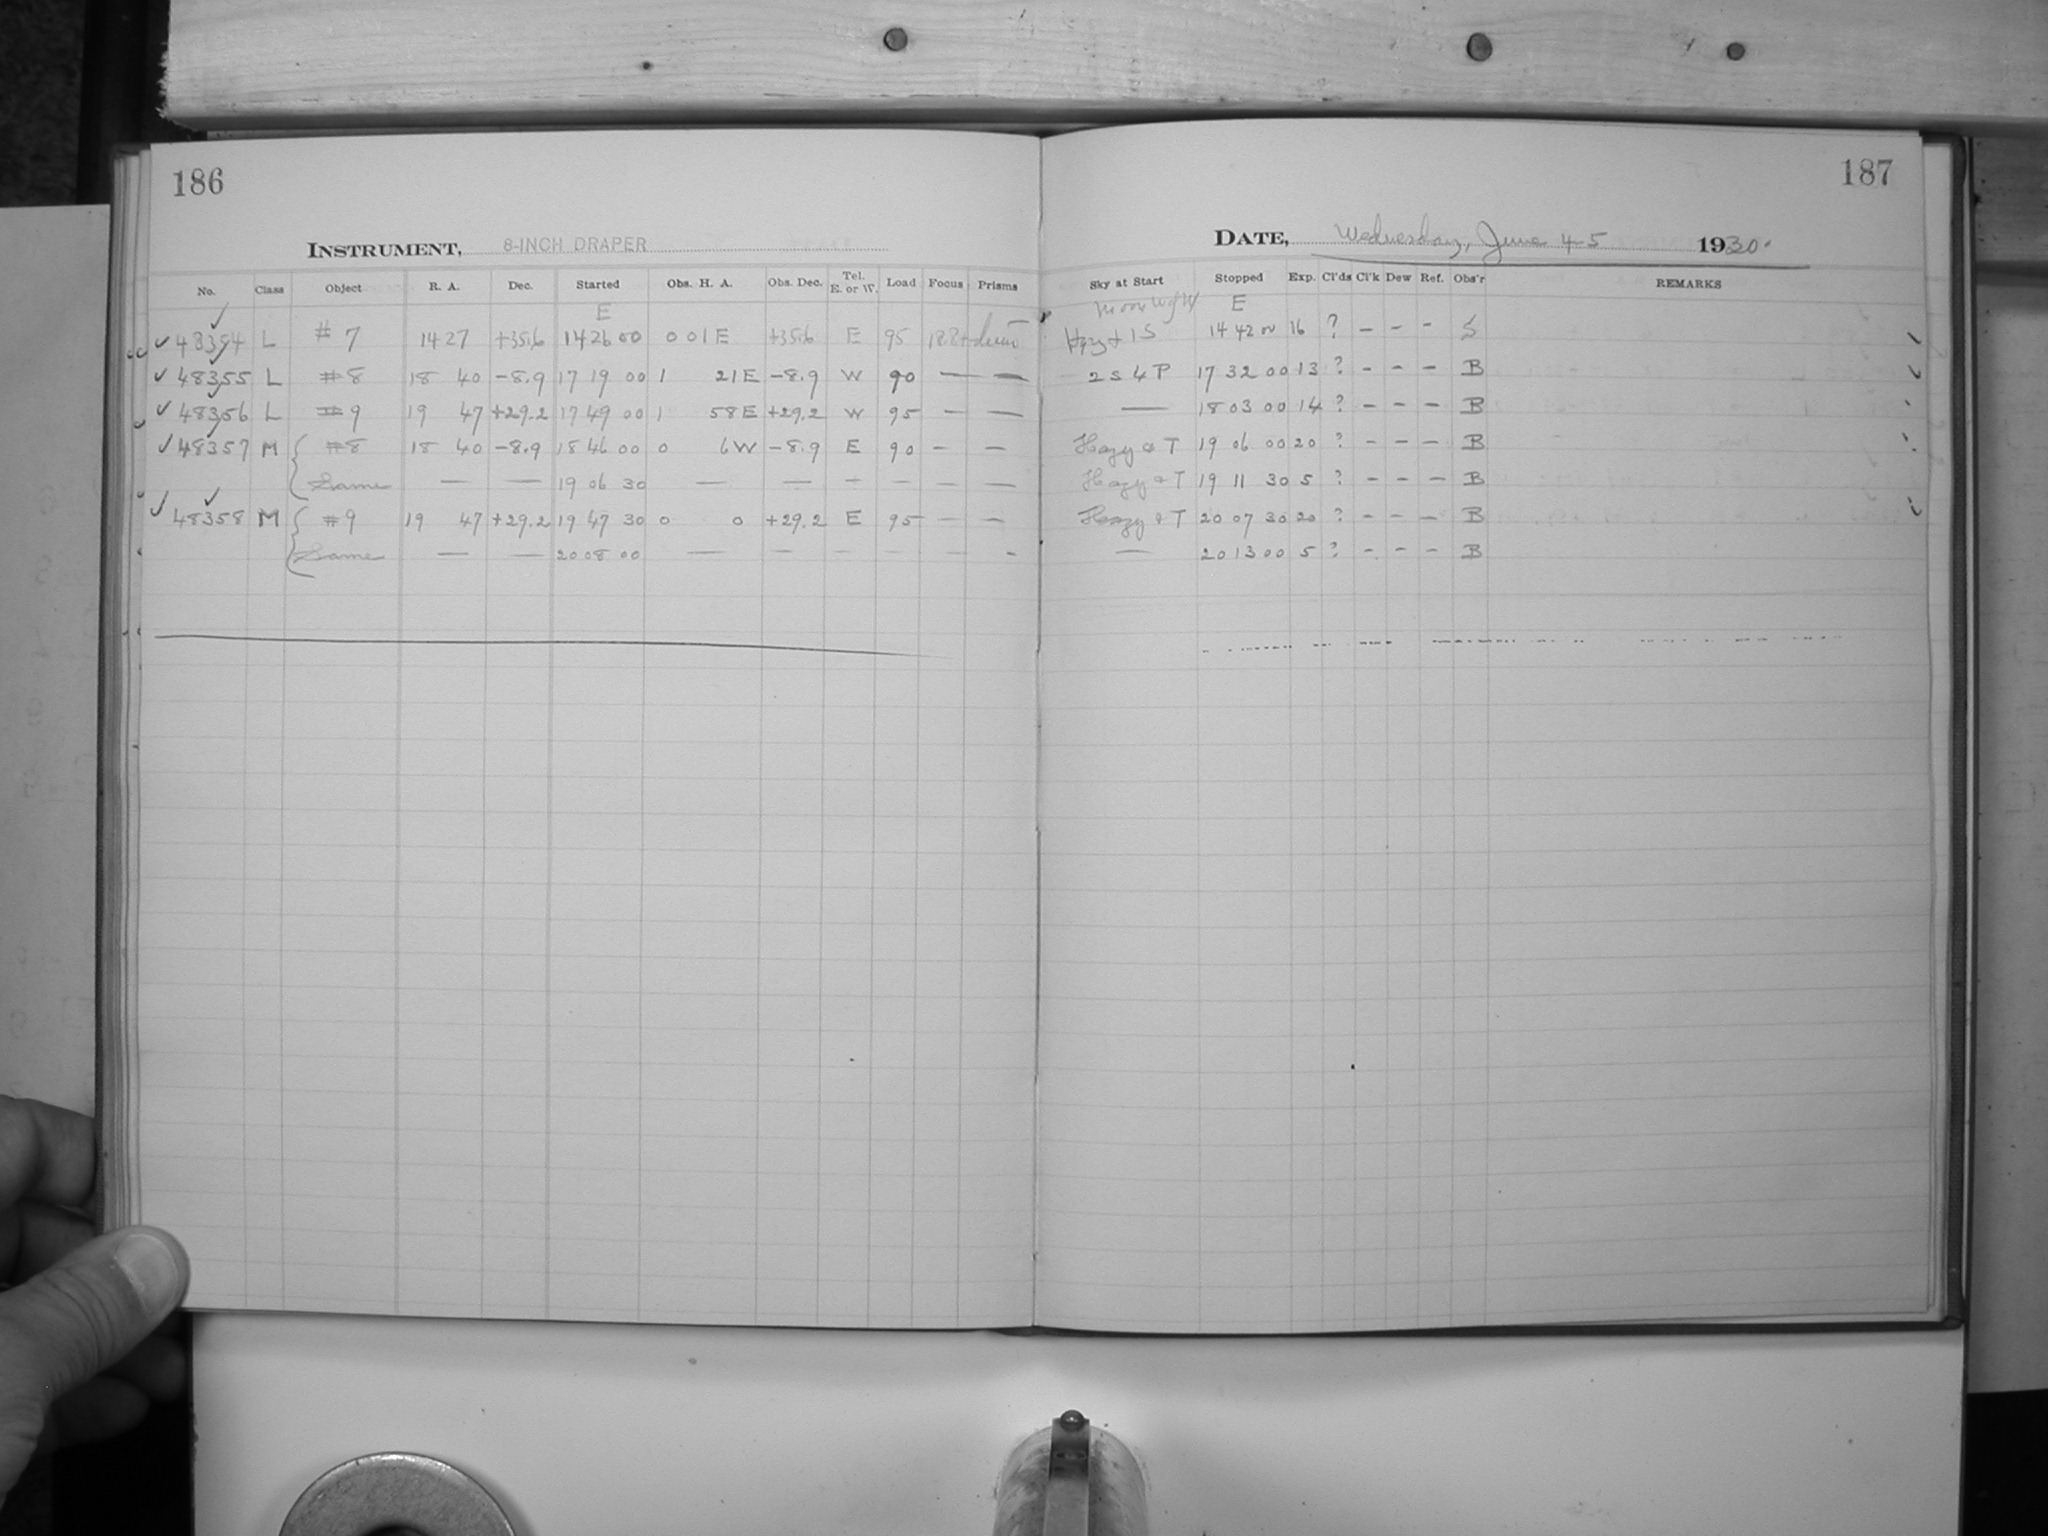 186
INSTRUMENT, 8-INCH DRAPER
No. Class Object R. A. Dec. Started Obs. H. A. Obs. Dec. Tel. E. or W. Load Focus Prisms
E
48354 L # 7 14 27 +35.6 14 26 00 0 01 E +35.6 E 95
48355 L #8 18 40 -8.9 17 19 00 1 21 E -8.9 W 90 — —
48356 L #9 19 47 +29.2 17 49 00 1 58 E +29.2 W 95 — —
48357 M #8 18 40 -8.9 18 46 00 0 6 W -8.9 E 90 — —
Same — — 19 06 30 — — — — — —
48358 M #9 19 47 +29.2 19 47 30 0 0 +29.2 E 95 — —
Same — — 20 08 00 — — — — — —
187
DATE, Wednesday, June 4-5 1930.
Sky at Start Stopped Exp. Cl'ds Cl'k Dew Ref. Obs'r REMARKS
Moon E
Hazy + 1 S 14 42 00 16 ? – – – S
2 S 4 P 17 32 00 13 ? – – – B
— 18 03 00 14 ? – – – B
Hazy & T 19 06 00 20 ? – – – B
Hazy & T 19 11 30 5 ? – – – B
Hazy & T 20 07 30 20 ? – – – B
— 20 13 00 5 ? – – – B